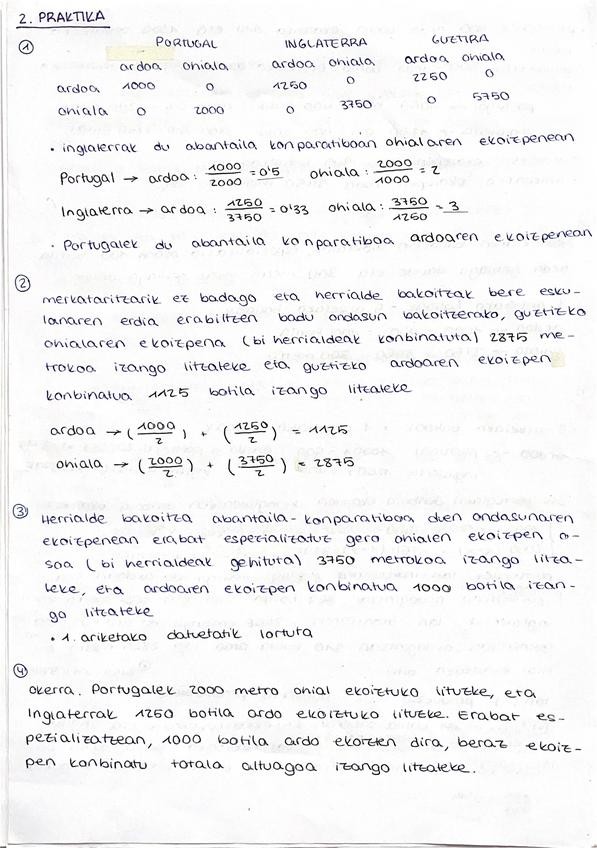 2. PRAKTIKA
① PORTUGAL INGLATERRA GUZTIRA
ardoa ohiala ardoa ohiala ardoa ohiala
ardoa 1000 0 1250 0 2250 0
ohiala 0 2000 0 3750 0 5750
• inglaterrak du abantaila konparatiboan ohialaren ekoizpenean
Portugal → ardoa: 1000/2000 = 0'5 ohiala: 2000/1000 = 2
Inglaterra → ardoa: 1250/3750 = 0'33 ohiala: 3750/1250 = 3
• Portugalek du abantaila konparatiboa ardoaren ekoizpenean
② merkataritzarik ez badago eta herrialde bakoitzak bere esku-
lanaren erdia erabiltzen badu ondasun bakoitzerako, guztizko
ohialaren ekoizpena (bi herrialdeak konbinatuta) 2875 me-
trokoa izango litzateke eta guztizko ardoaren ekoizpen
konbinatua 1125 botila izango litzateke
ardoa → (1000/2) + (1250/2) = 1125
ohiala → (2000/2) + (3750/2) = 2875
③ Herrialde bakoitza abantaila-konparatiboa duen ondasunaren
ekoizpenean erabat espezializatuz gero ohialen ekoizpen o-
soa (bi herrialdeak gehituta) 3750 metrokoa izango litza-
teke, eta ardoaren ekoizpen konbinatua 1000 botila izan-
go litzateke
• 1. ariketako datuetatik lortuta
④
okerra. Portugalek 2000 metro ohial ekoiztuko lituzke, eta
Inglaterrak 1250 botila ardo ekoiztuko lituzke. Erabat es-
pezializatzean, 1000 botila ardo ekoizten dira, beraz ekoiz-
pen konbinatu totala altuagoa izango litzateke.